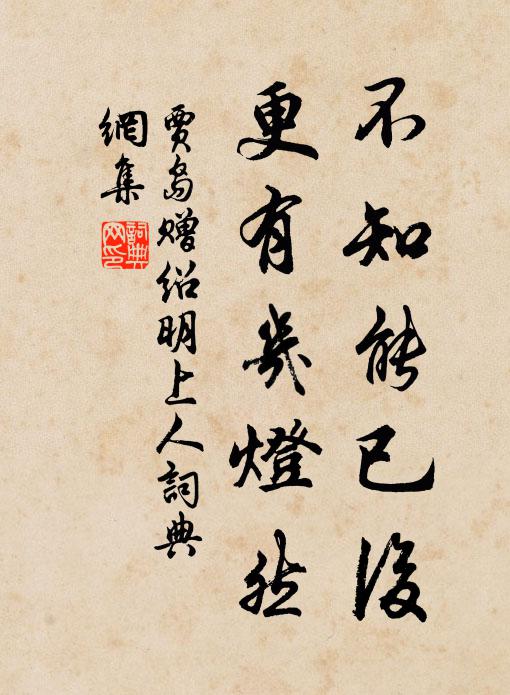 不知能已後
更有幾燈然
賈島贈紹明上人詞典
網集
詞典
网印